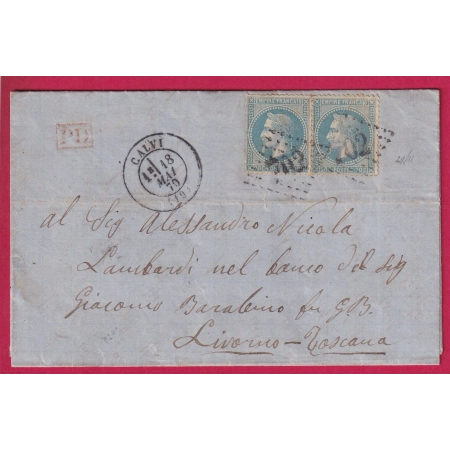 EMPIRE FRANÇAIS EMPIRE FRANÇAIS
P.D.
CALVI
18
MAI
70
al Sig Alessandro Nicola
Lambardi nel banco del Sig
Giacomo Barabino fu G.B.
Livorno-Toscana